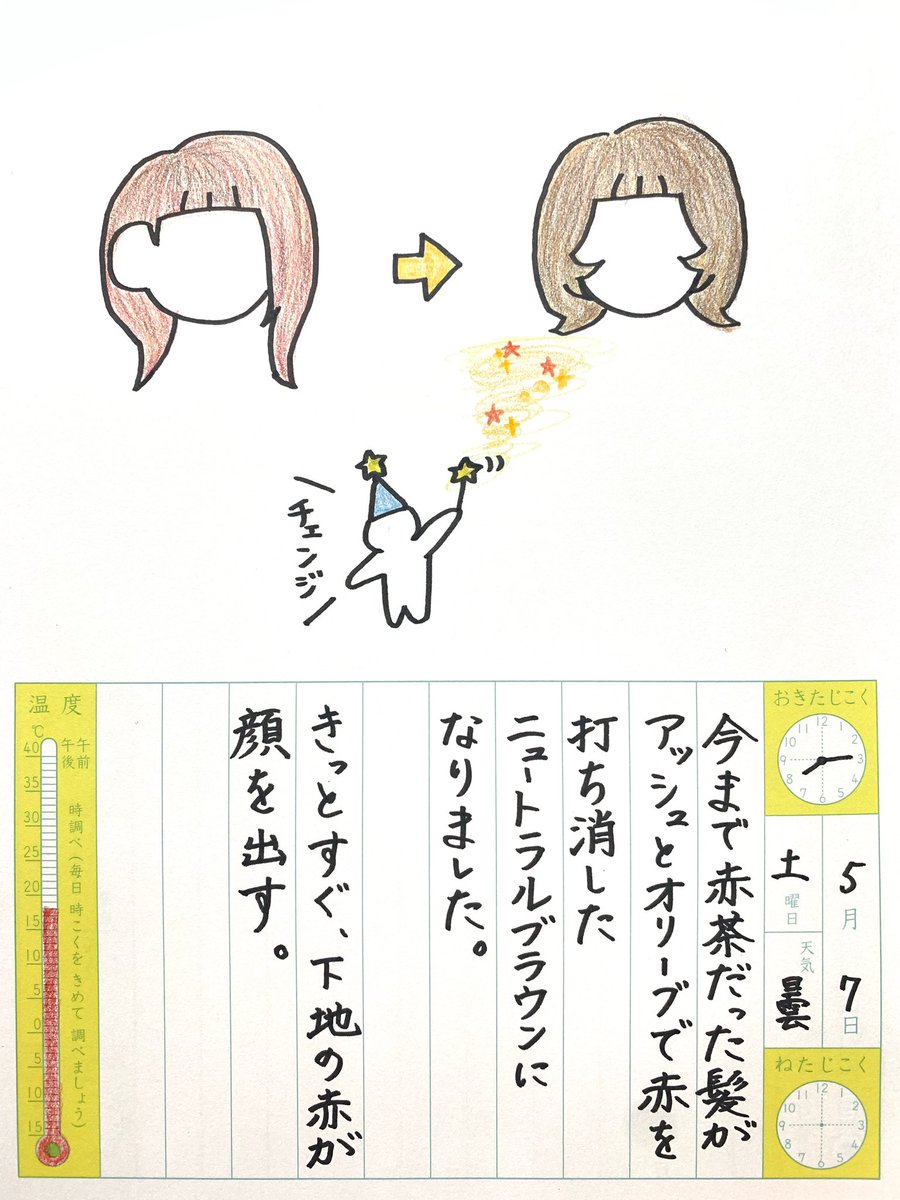 \チェンジ/
おきたじこく
12
1
2
3
4
5
6
7
8
9
10
11
5月7日
土曜日
天気
曇
ねたじこく
12
1
2
3
4
5
6
7
8
9
10
11
今まで赤茶だった髪が
アッシュとオリーブで赤を
打ち消した
ニュートラルブラウンに
なりました。
きっとすぐ、下地の赤が
顔を出す。
温度
℃
午前
午後
時調べ(毎日 時こくを きめて 調べましょう)
40
35
30
25
20
15
10
5
0
5
10
15